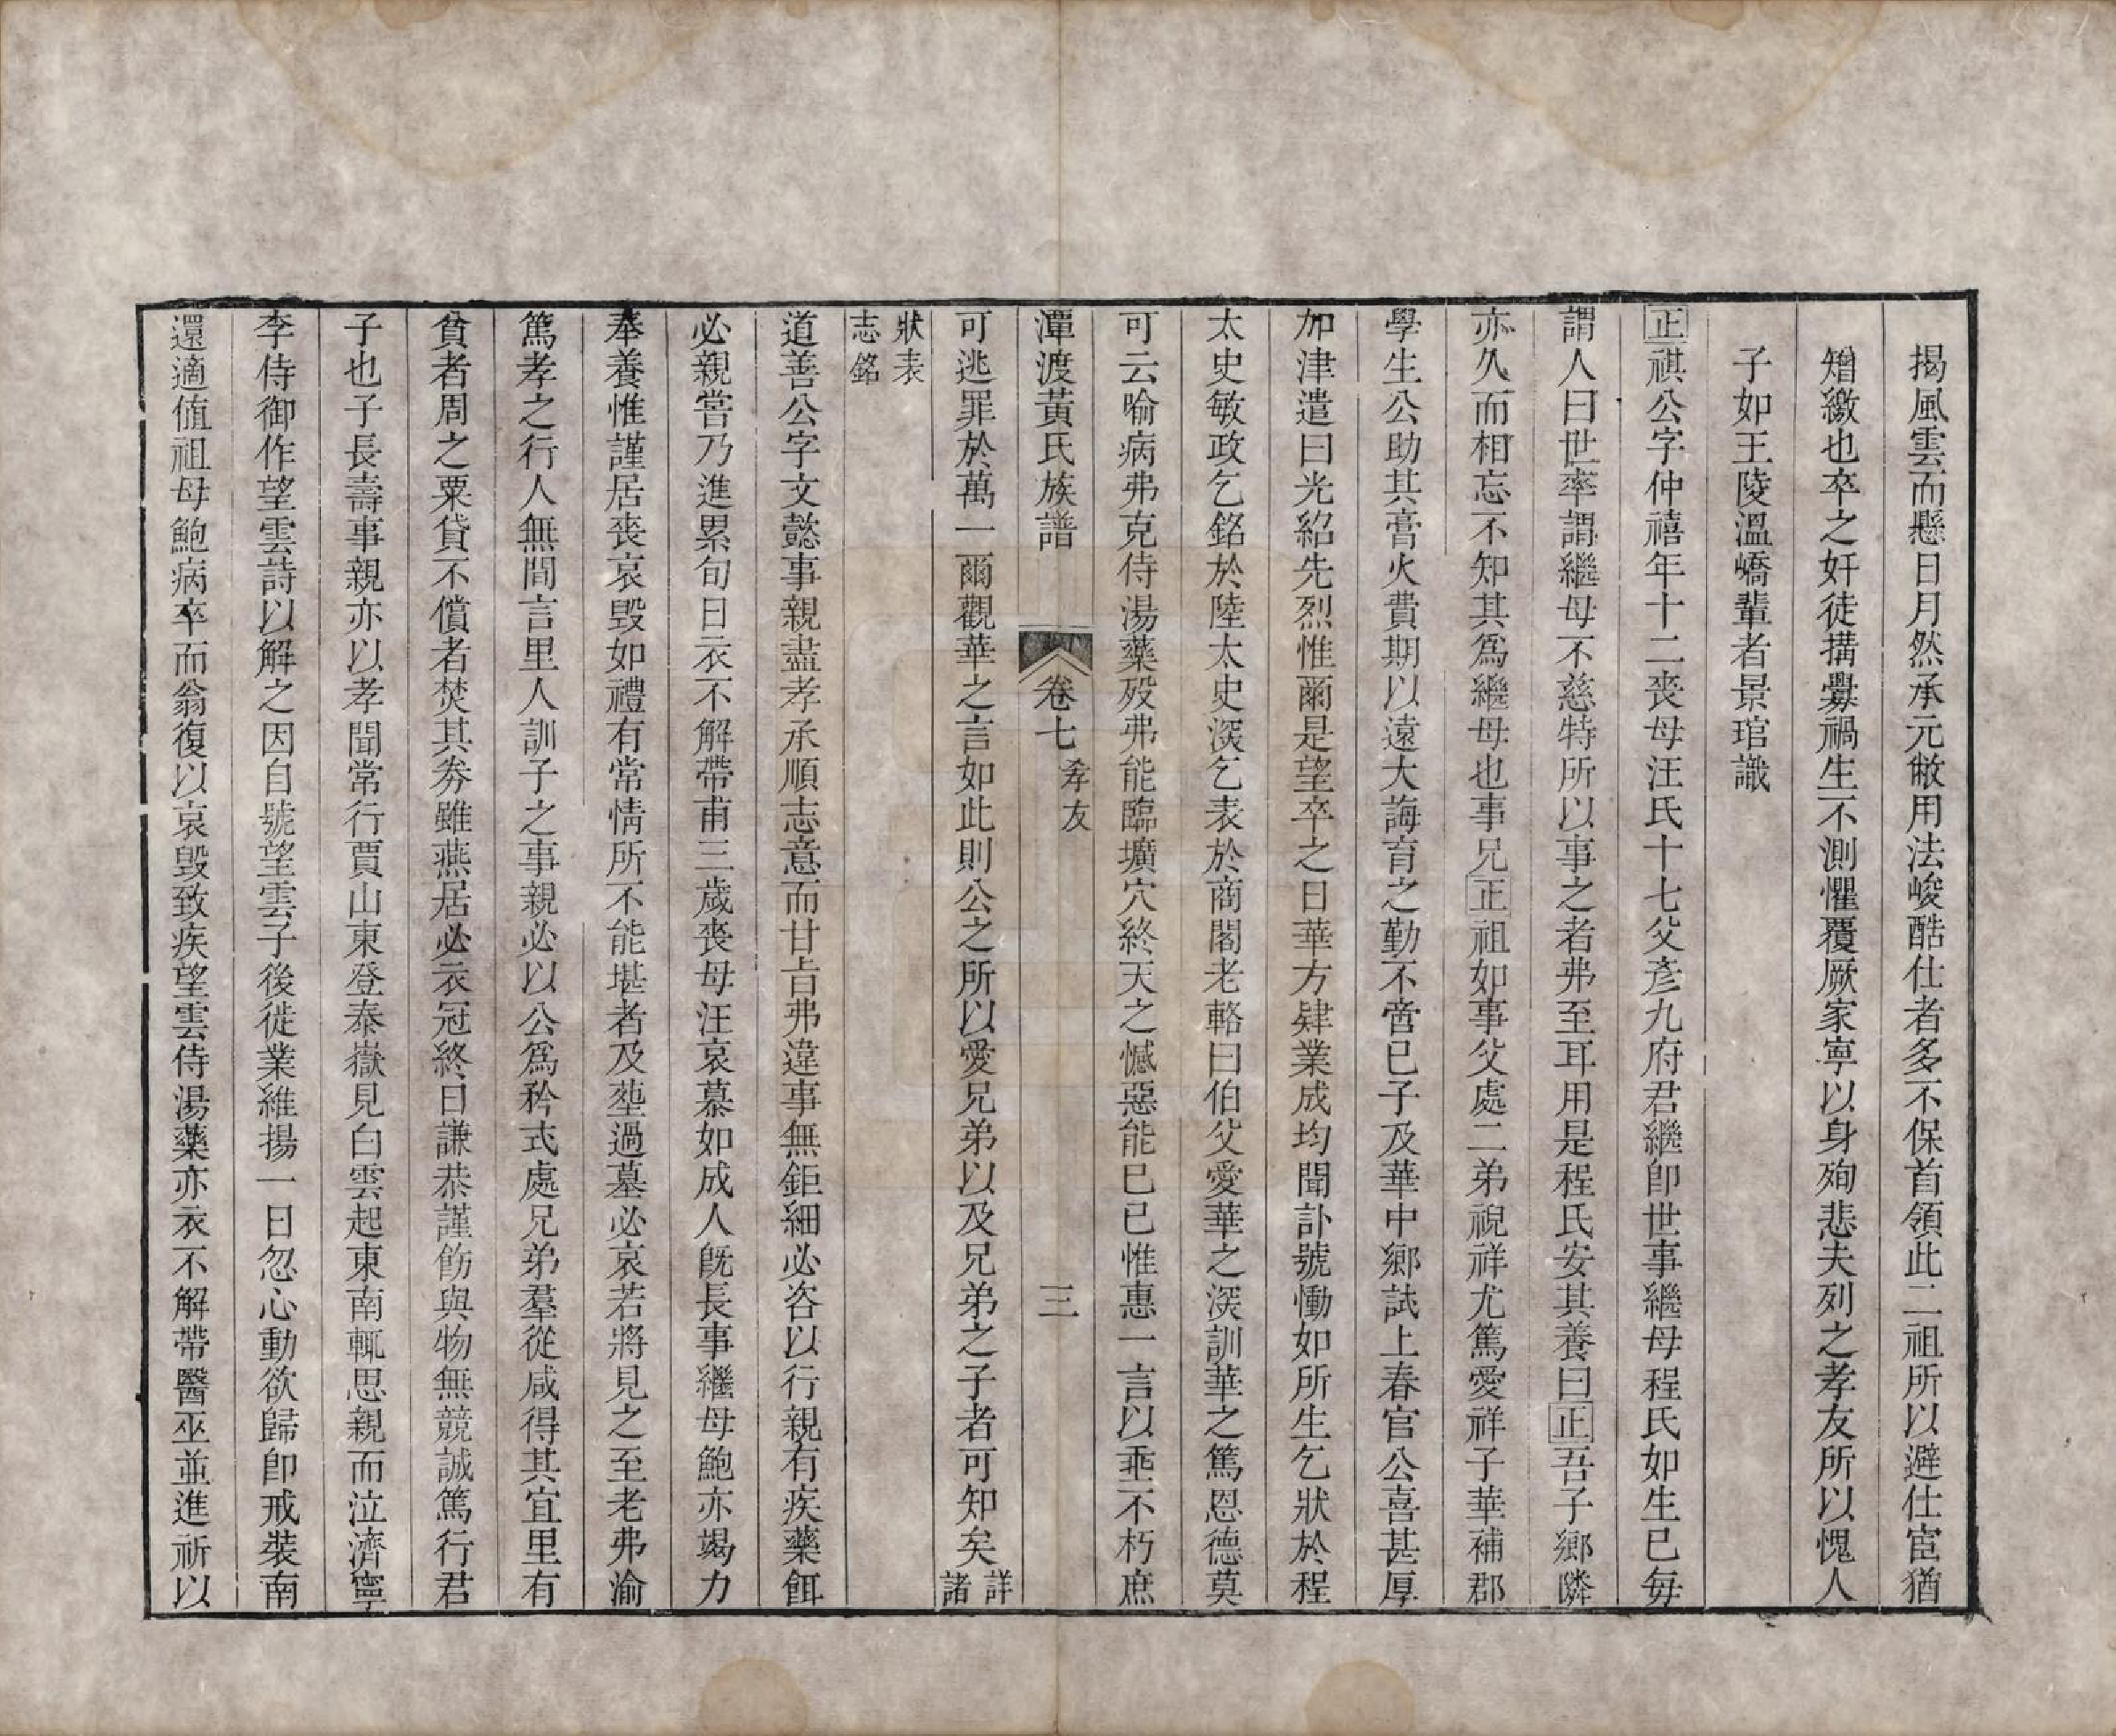 揭風雲而懸日月然承元敝用法峻酷仕者多不保首領此二祖所以避仕宦猶
矰繳也卒之奸徒搆釁禍生不測懼覆厥家寧以身殉悲夫列之孝友所以愧人
子如王陵溫嶠輩者景琯識
正祺公字仲禧年十二喪母汪氏十七父彥九府君繼卽世事繼母程氏如生已每
謂人曰世率謂繼母不慈特所以事之者弗至耳用是程氏安其養曰正吾子鄉隣
亦久而相忘不知其爲繼母也事兄正祖如事父處二弟祝祥尤篤愛祥子華補郡
學生公助其膏火費期以遠大誨育之勤不啻已子及華中鄉試上春官公喜甚厚
加津遣曰光紹先烈惟爾是望卒之日華方肄業成均聞訃號慟如所生乞狀於程
太史敏政乞銘於陸太史深乞表於商閣老輅曰伯父愛華之深訓華之篤恩德莫
可云喻病弗克侍湯藥殁弗能臨壙穴終天之憾惡能已已惟惠一言以垂不朽庶
潭渡黃氏族譜 卷七 孝友 三
可逃罪於萬一爾觀華之言如此則公之所以愛兄弟以及兄弟之子者可知矣詳諸
狀表
志銘
道善公字文懿事親盡孝承順志意而甘旨弗違事無鉅細必咨以行親有疾藥餌
必親嘗乃進累旬日衣不解帶甫三歲喪母汪哀慕如成人旣長事繼母鮑亦竭力
奉養惟謹居喪哀毀如禮有常情所不能堪者及塟過墓必哀若將見之至老弗渝
篤孝之行人無間言里人訓子之事親必以公爲矜式處兄弟羣從咸得其宜里有
貧者周之粟貸不償者焚其券雖燕居必衣冠終日謙恭謹飭與物無競誠篤行君
子也子長壽事親亦以孝聞常行賈山東登泰嶽見白雲起東南輒思親而泣濟寧
李侍御作望雲詩以解之因自號望雲子後徙業維揚一日忽心動欲歸卽戒裝南
還適値祖母鮑病卒而翁復以哀毀致疾望雲侍湯藥亦衣不解帶醫巫並進祈以